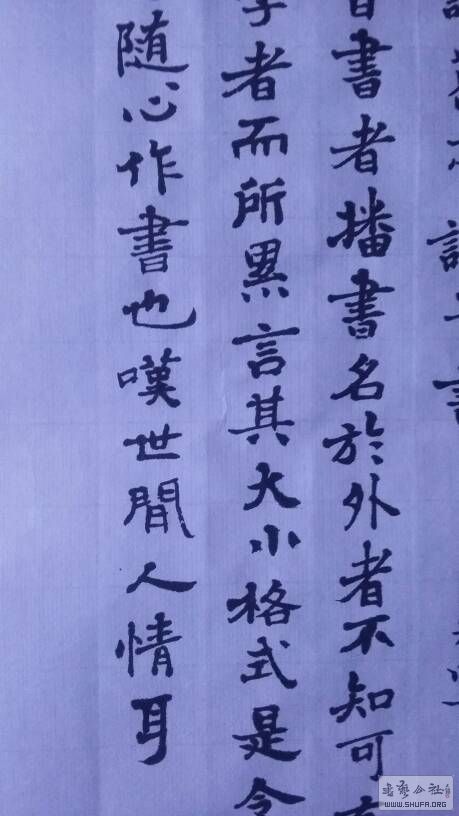 書者播書名於外者不知可
者而所累言其大小格式是
隨心作書也嘆世間人情耳
书艺公社
WWW.SHUFA.ORG